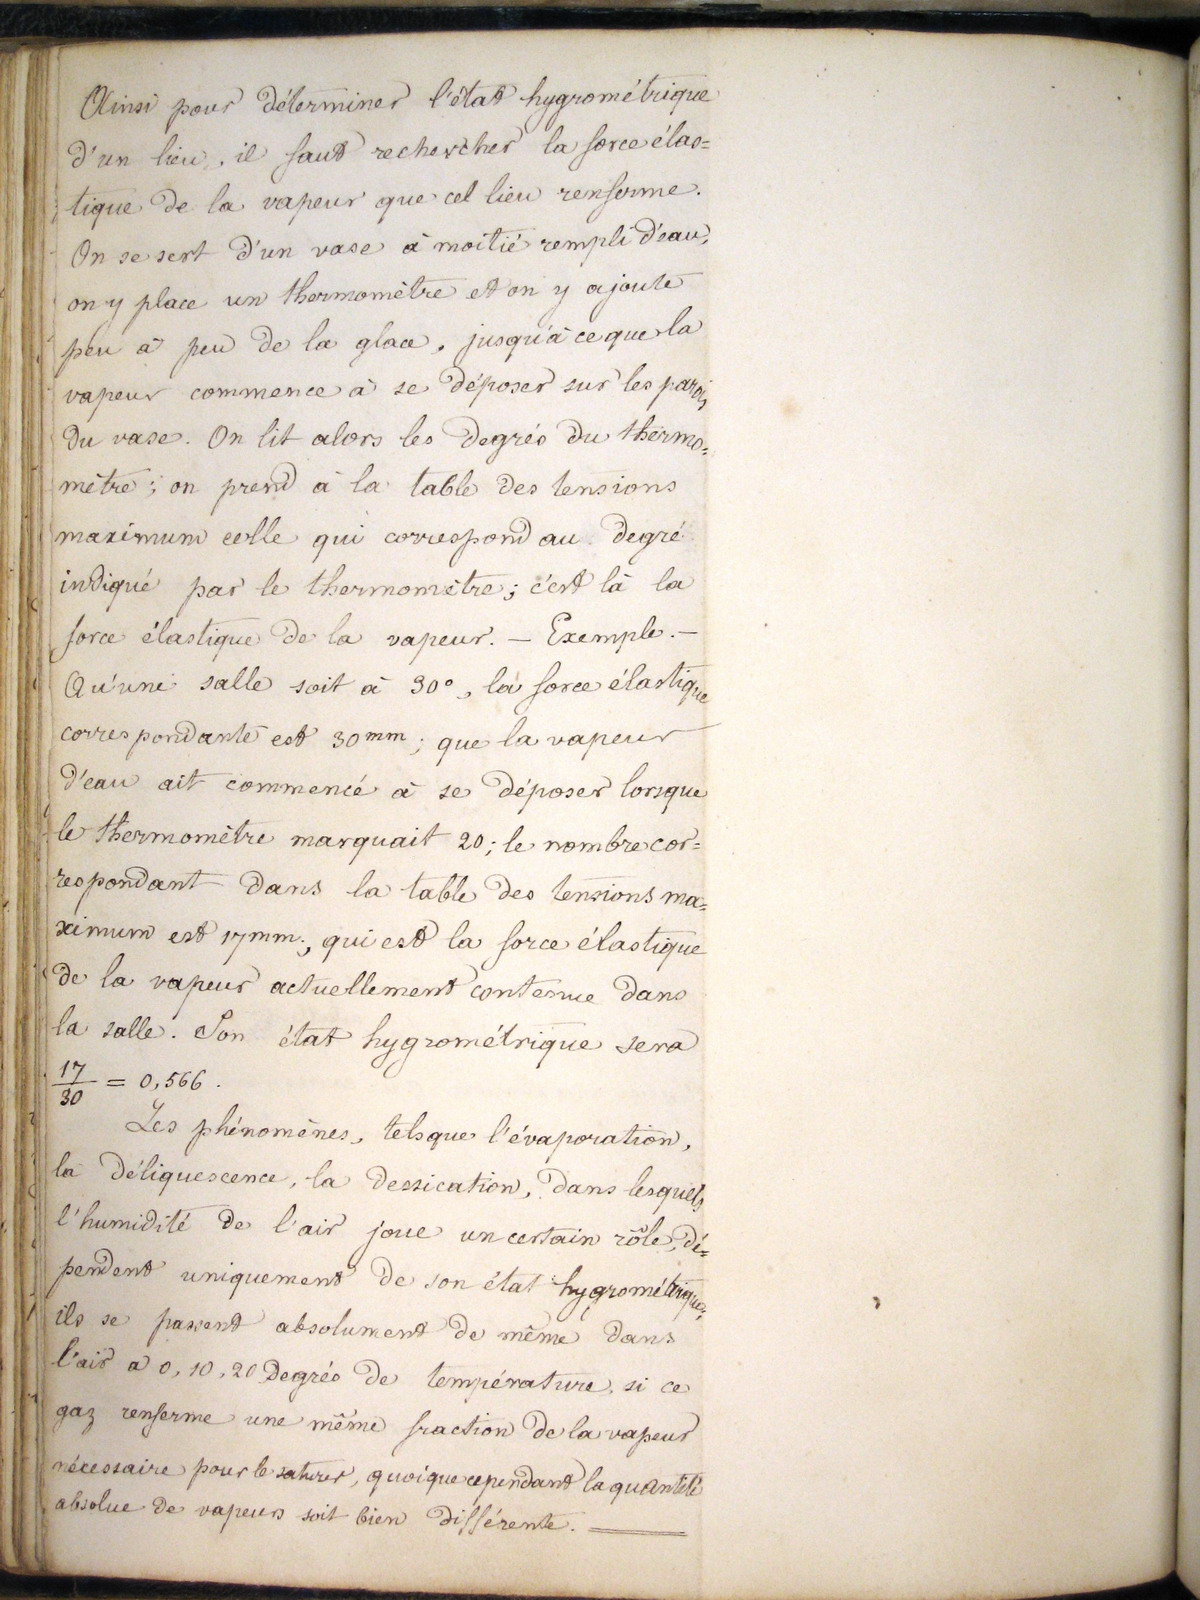 Ainsi pour déterminer l'état hygrométrique
d'un lieu, il faut rechercher la force élas=
tique de la vapeur que cet lieu renferme.
On se sert d'un vase à moitié rempli d'eau,
on y place un thermomètre et on y ajoute
peu à peu de la glace, jusqu'à ce que la
vapeur commence à se déposer sur les parois
du vase. On lit alors les degrés du thermo=
mètre; on prend à la table des tensions
maximum celle qui correspond au degré
indiqué par le thermomètre; c'est là la
force élastique de la vapeur. — Exemple. —
Qu'une salle soit à 30°, la force élastique
correspondante est 30mm; que la vapeur
d'eau ait commencé à se déposer lorsque
le thermomètre marquait 20; le nombre cor=
respondant dans la table des tensions ma=
ximum est 17mm., qui est la force élastique
de la vapeur actuellement contenue dans
la salle. Son état hygrométrique sera
17/30 = 0,566.
Les phénomènes, tels que l'évaporation,
la déliquescence, la dessication, dans lesquels
l'humidité de l'air joue un certain rôle, dé=
pendent uniquement de son état hygrométrique;
ils se passent absolument de même dans
l'air à 0, 10, 20 degrés de température, si ce
gaz renferme une même fraction de la vapeur
nécessaire pour le saturer, quoique cependant la quantité
absolue de vapeurs soit bien différente.